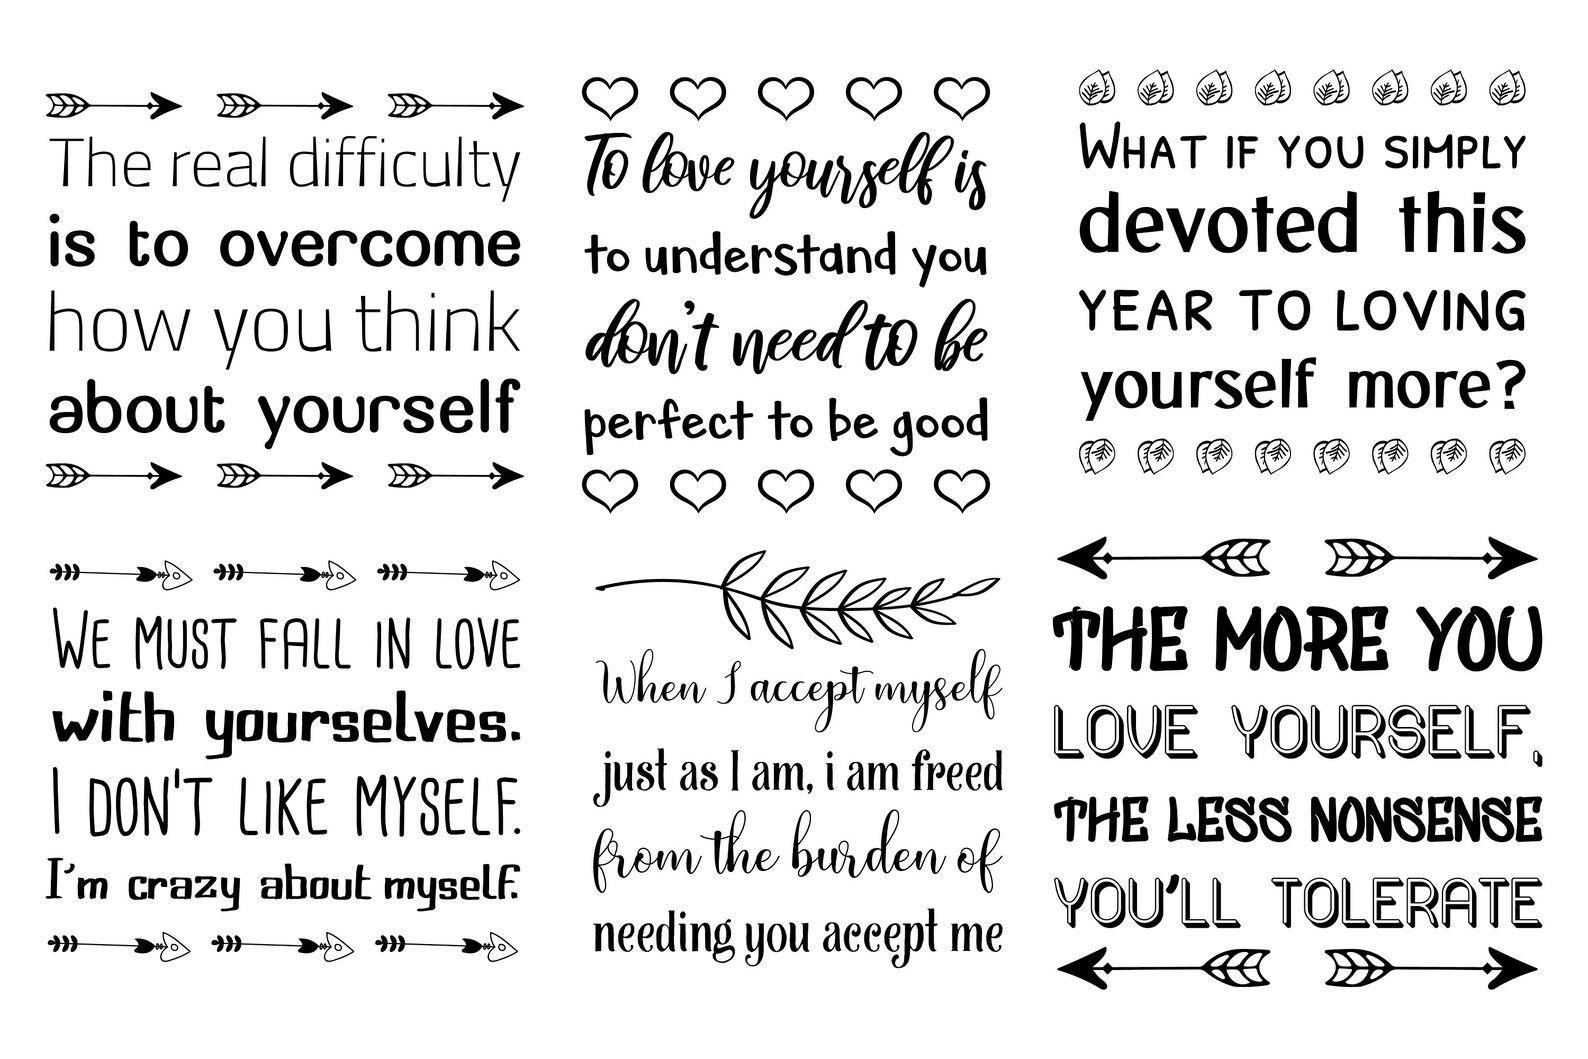 The real difficulty
is to overcome
how you think
about yourself
To love yourself is
to understand you
don't need to be
perfect to be good
WHAT IF YOU SIMPLY
devoted this
YEAR TO LOVING
yourself more?
WE MUST FALL IN LOVE
with yourselves.
I DON'T LIKE MYSELF.
I'm crazy about myself.
When I accept myself
just as I am, i am freed
from the burden of
needing you accept me
THE MORE YOU
LOVE YOURSELF,
THE LESS NONSENSE
YOU'LL TOLERATE